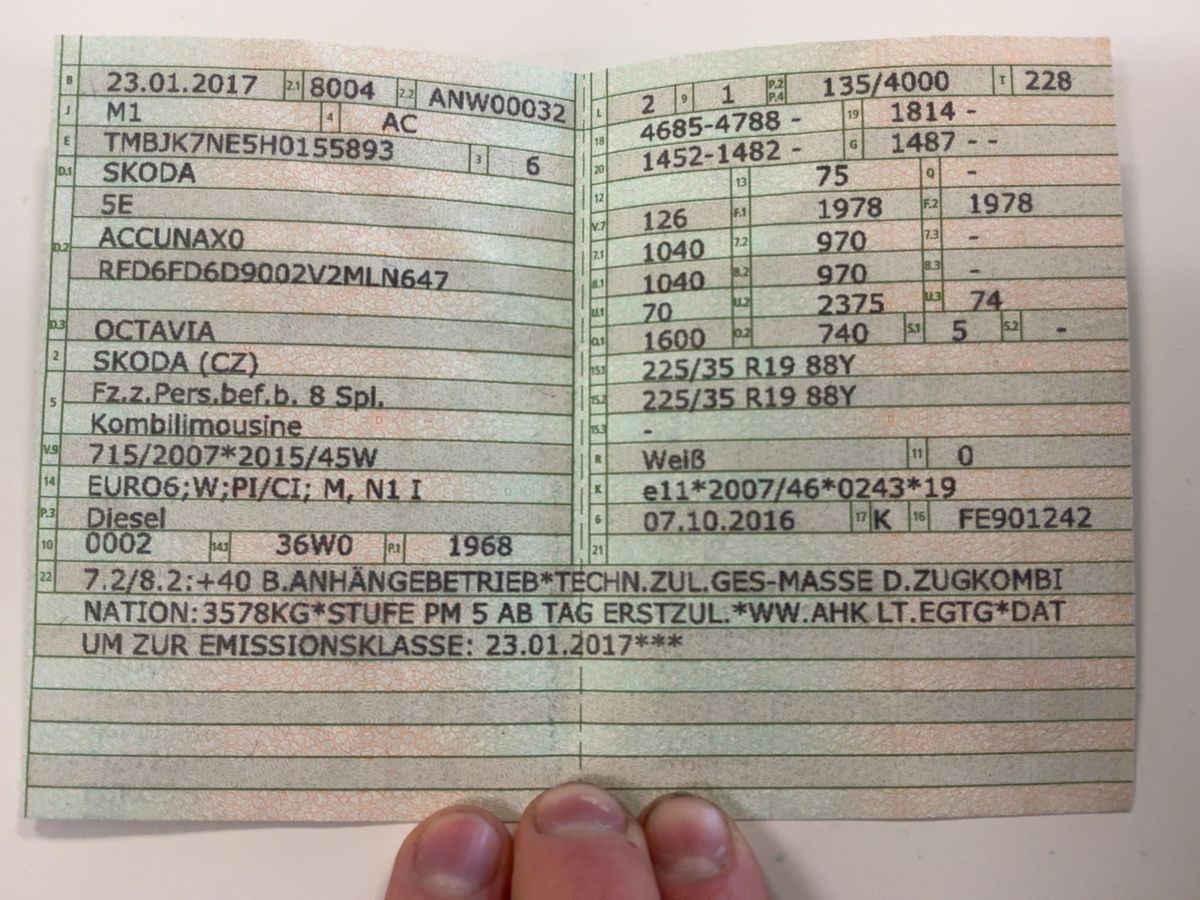 B 23.01.2017 2.1 8004 2.2 ANW00032
J M1 4 AC
E TMBJK7NE5H0155893 3 6
D.1 SKODA
5E
D.2 ACCUNAX0
RFD6FD6D9002V2MLN647
D.3 OCTAVIA
2 SKODA (CZ)
5 Fz.z.Pers.bef.b. 8 Spl.
Kombilimousine
V.9 715/2007*2015/45W
14 EURO6;W;PI/CI; M, N1 I
P.3 Diesel
10 0002 14.1 36W0 P.1 1968
L 2 9 1 P.2 P.4 135/4000 T 228
18 4685-4788 - 19 1814 -
20 1452-1482 - G 1487 - -
12 13 75 Q -
V.7 126 F.1 1978 F.2 1978
7.1 1040 7.2 970 7.3 -
8.1 1040 8.2 970 8.3 -
U.1 70 U.2 2375 U.3 74
O.1 1600 O.2 740 S.1 5 S.2 -
15.1 225/35 R19 88Y
15.2 225/35 R19 88Y
15.3 -
R Weiß 11 0
K e11*2007/46*0243*19
6 07.10.2016 17 K 16 FE901242
21
22 7.2/8.2:+40 B.ANHÄNGEBETRIEB*TECHN.ZUL.GES-MASSE D.ZUGKOMBI
NATION:3578KG*STUFE PM 5 AB TAG ERSTZUL.*WW.AHK LT.EGTG*DAT
UM ZUR EMISSIONSKLASSE: 23.01.2017***